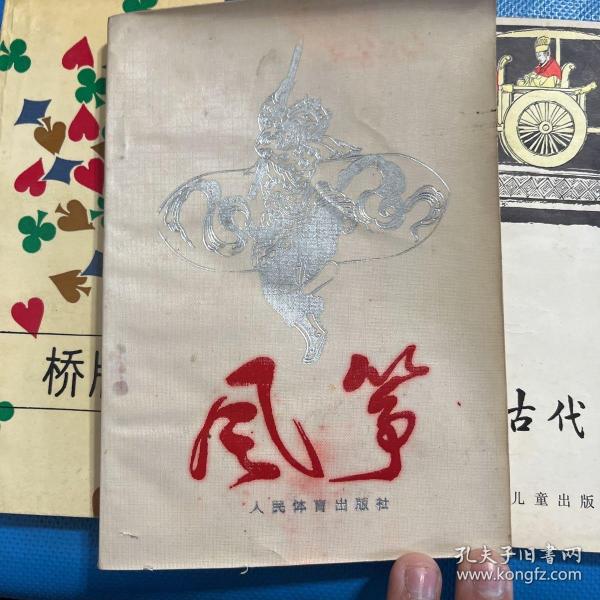 桥
风筝
人民体育出版社
古代
儿童出版
孔夫子旧书网
www.kongfz.com